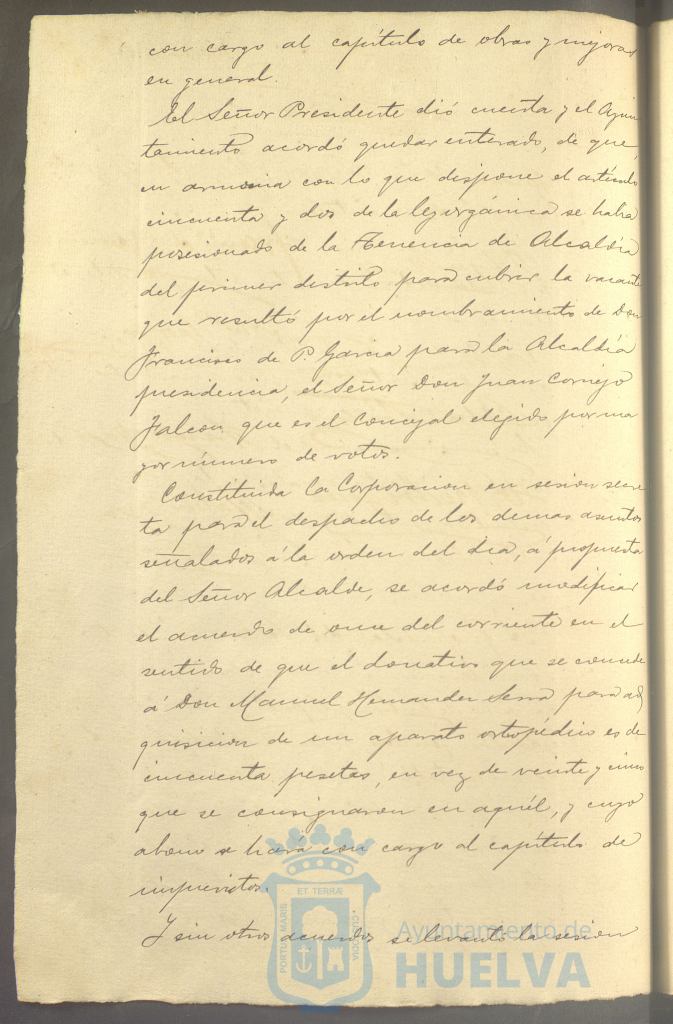 con cargo al capítulo de obras y mejoras
en general.
El Señor Presidente dió cuenta y el Ayun
tamiento acordó quedar enterado, de que,
en armonia con lo que dispone el artículo
cincuenta y dos de la ley orgánica se habia
posesionado de la Tenencia de Alcaldía
del primer distrito para cubrir la vacante
que resultó por el nombramiento de Don
Francisco de P. Garcia para la Alcaldía
presidencia, el Señor Don Juan Cornejo
Falcon que es el Concejal elegido por ma
yor número de votos.
Constituida la Corporacion en sesion secre
ta para el despacho de los demas asuntos
señalados á la orden del dia, á propuesta
del Señor Alcalde, se acordó modificar
el acuerdo de once del corriente en el
sentido de que el donativo que se concede
á Don Manuel Hernandez Serra para ad
quisicion de un aparato ortopédico es de
cincuenta pesetas, en vez de veinte y cinco
que se consignaron en aquél, y cuyo
abono se hará con cargo al capítulo de
imprevistos.
Y sin otros acuerdos se levantó la sesion
PORTUS MARIS ET TERRÆ CUSTODIA
Ayuntamiento de
HUELVA